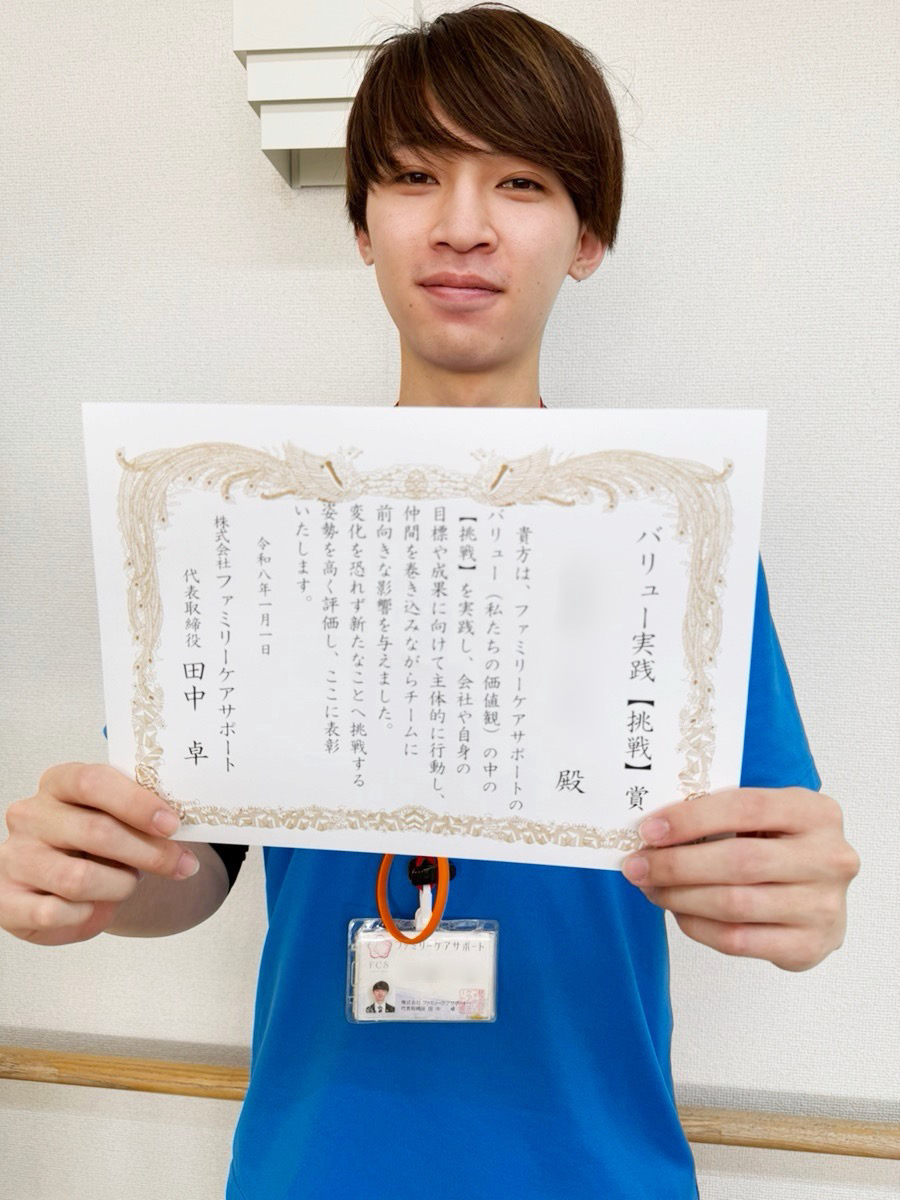 バリュー実践【挑戦】賞
殿
貴方は、ファミリーケアサポートの
バリュー（私たちの価値観）の中の
【挑戦】を実践し、会社や自身の
目標や成果に向けて主体的に行動し、
仲間を巻き込みながらチームに
前向きな影響を与えました。
変化を恐れず新たなことへ挑戦する
姿勢を高く評価し、ここに表彰
いたします。
令和八年一月一日
株式会社 ファミリーケアサポート
代表取締役 田中 卓
ファミリーケアサポート
FCS
株式会社 ファミリーケアサポート
代表取締役 田中 卓